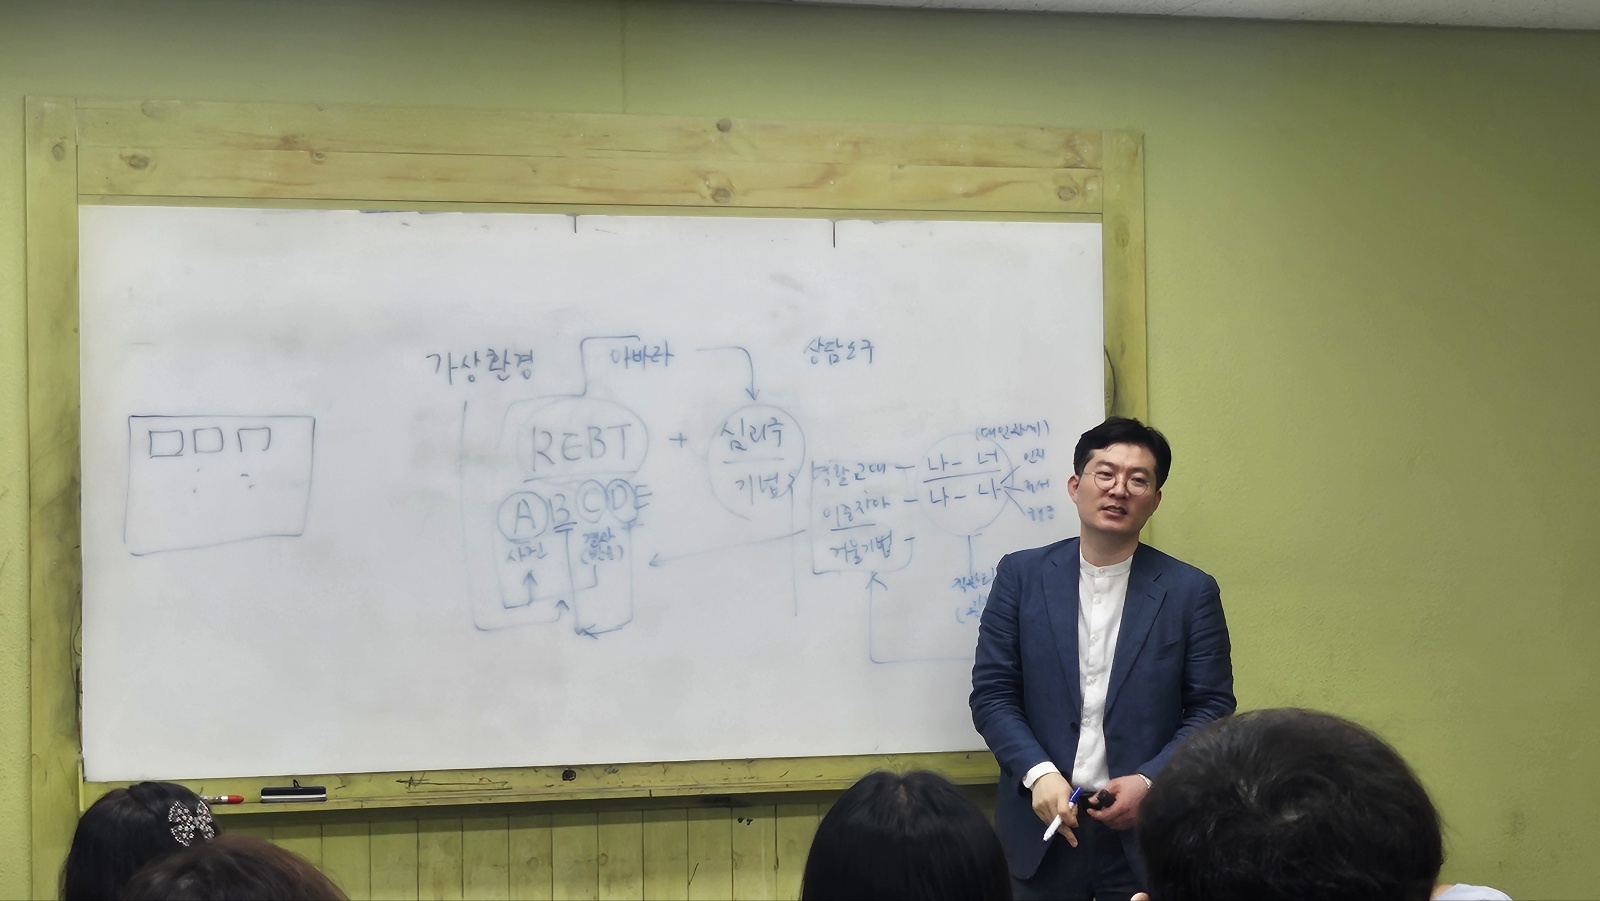 가상환경 아바라 상담도구
REBT + 심리극
기법
A B C D E
사건 결과
(반응)
역할교대 나 - 너
이중자아 나 - 나
거울기법
(대인관계)
인지
정서